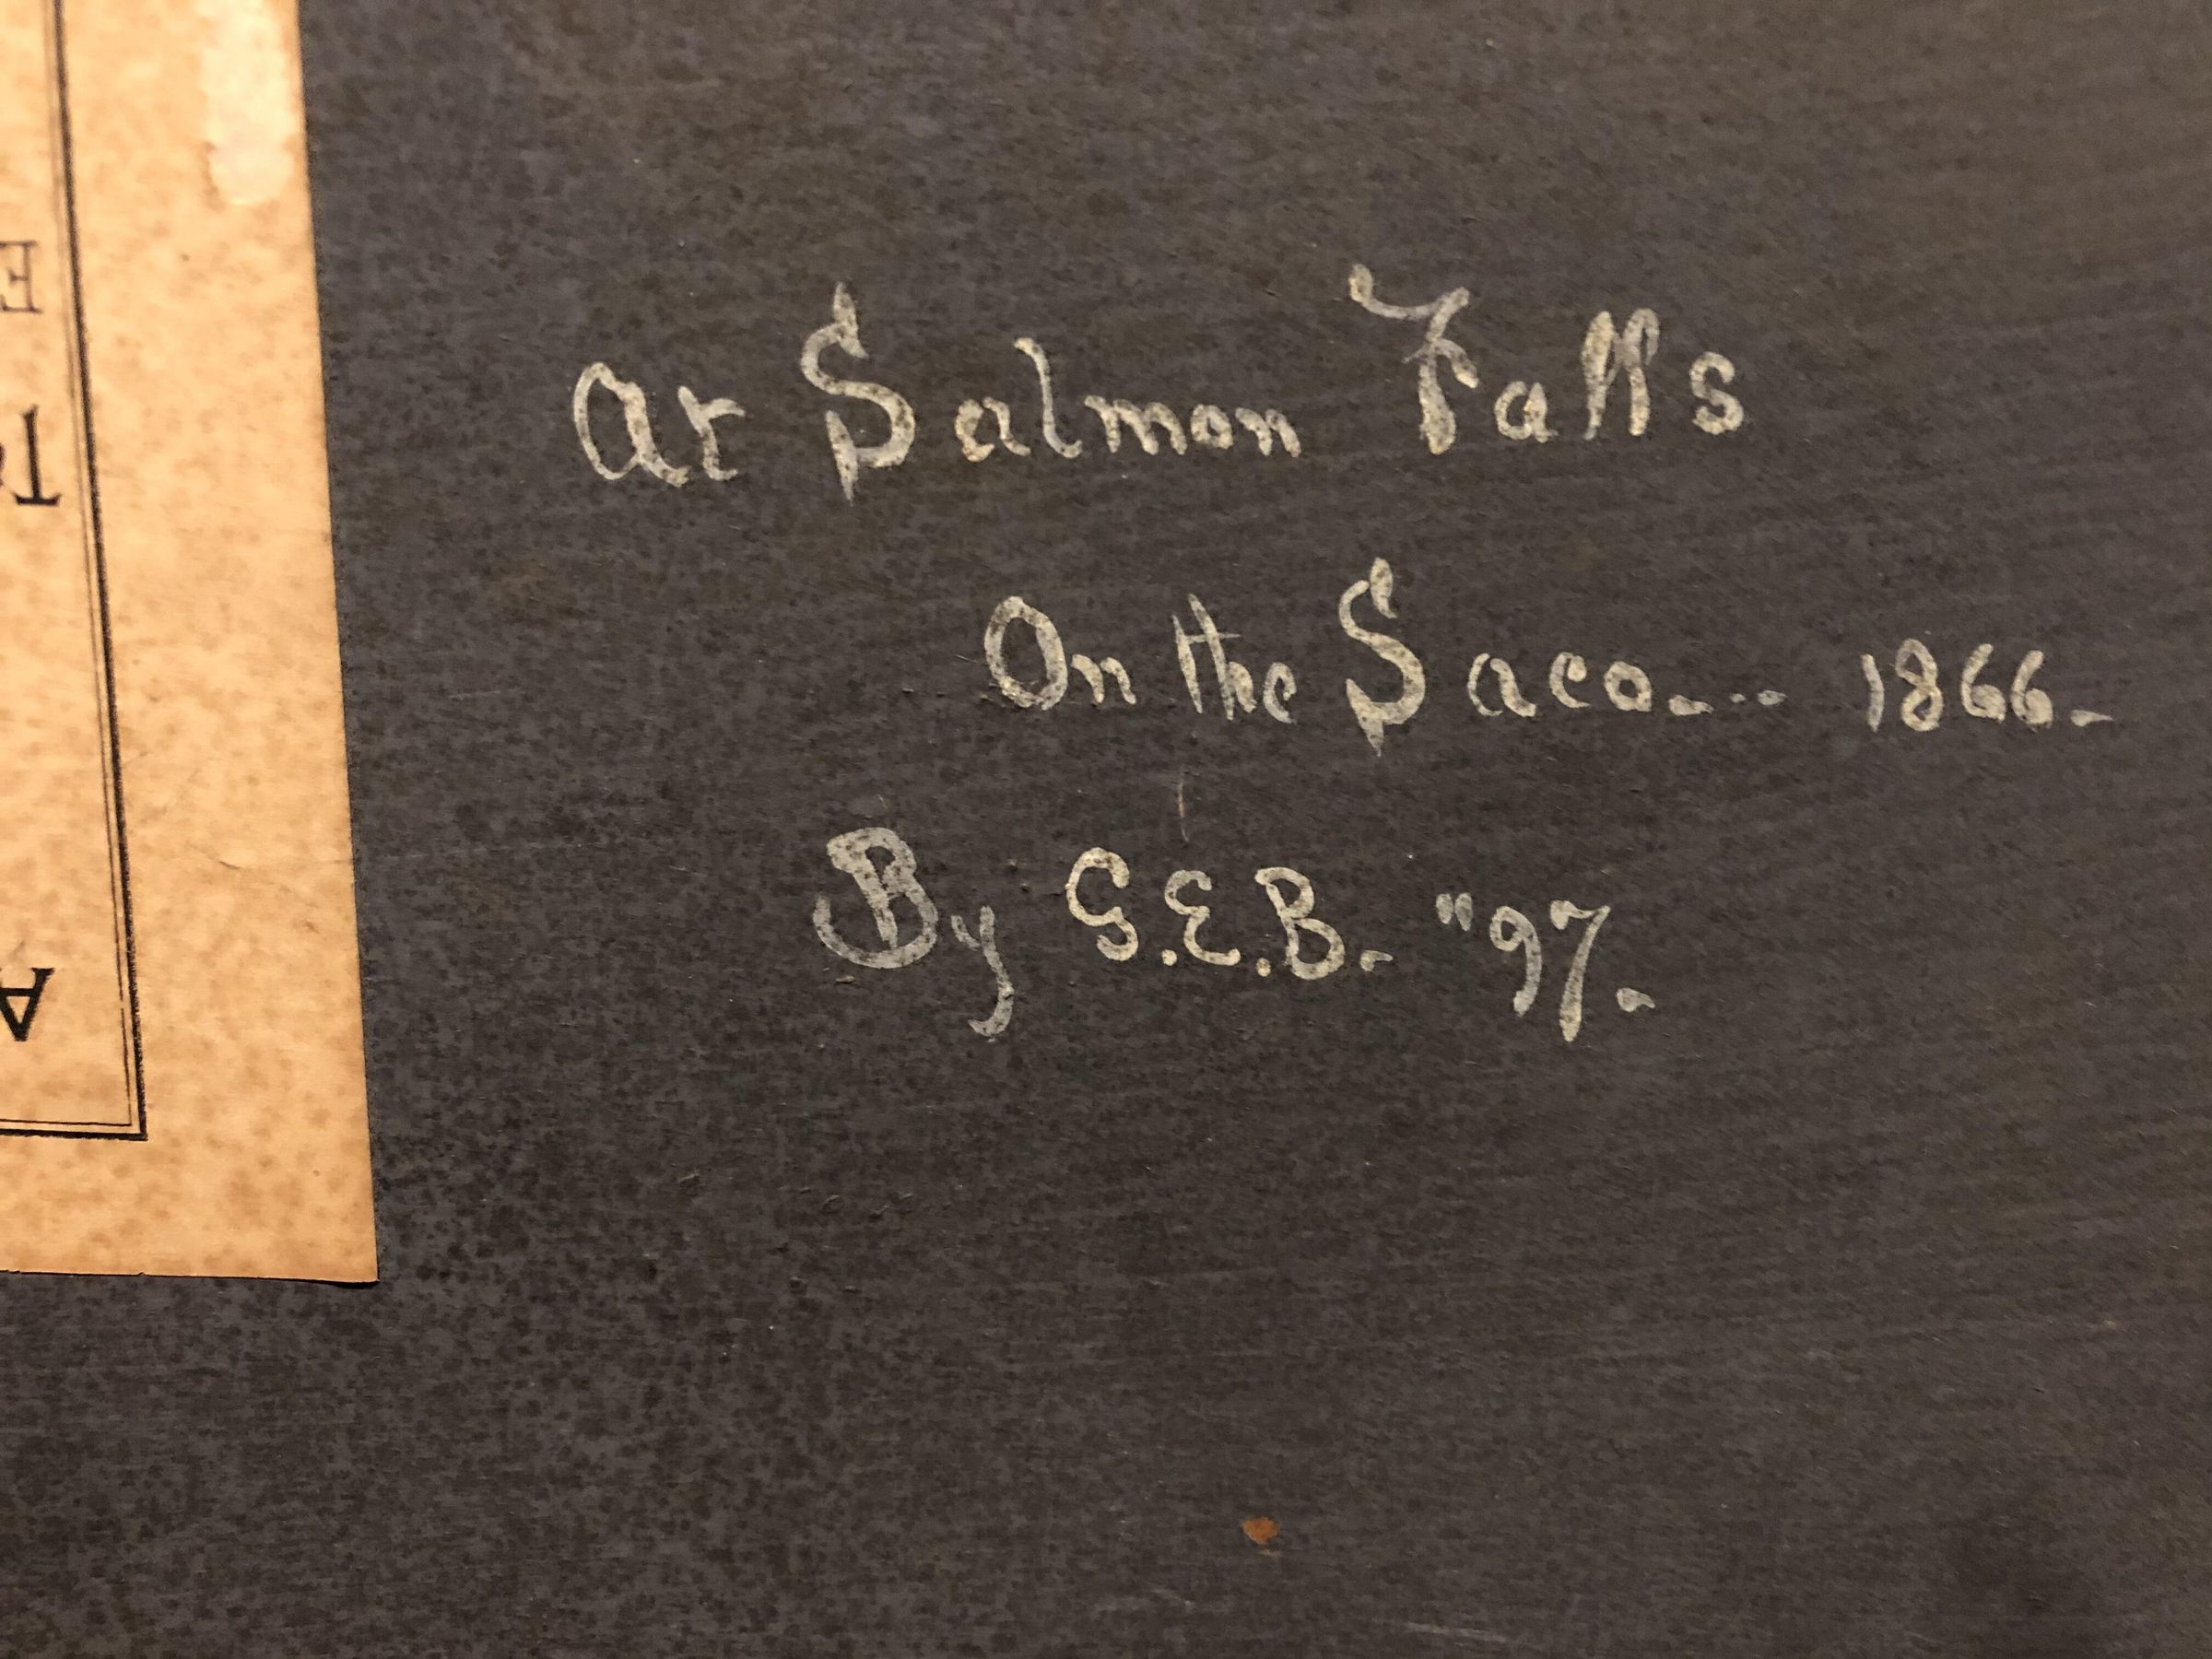 At Salmon Falls
On the Saco... 1866.
By G.E.B. "97.
E
T
A